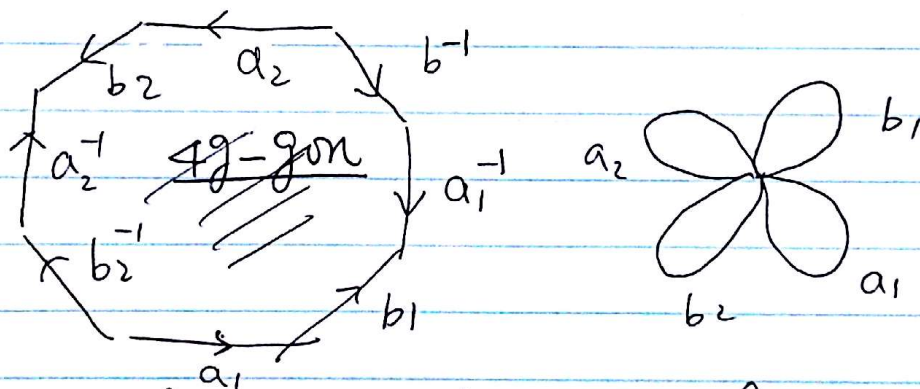 b⁻¹
a₂
b₂
a₂⁻¹
4g-gon
a₁⁻¹
b₂⁻¹
b₁
a₁
a₂
b₁
b₂
a₁